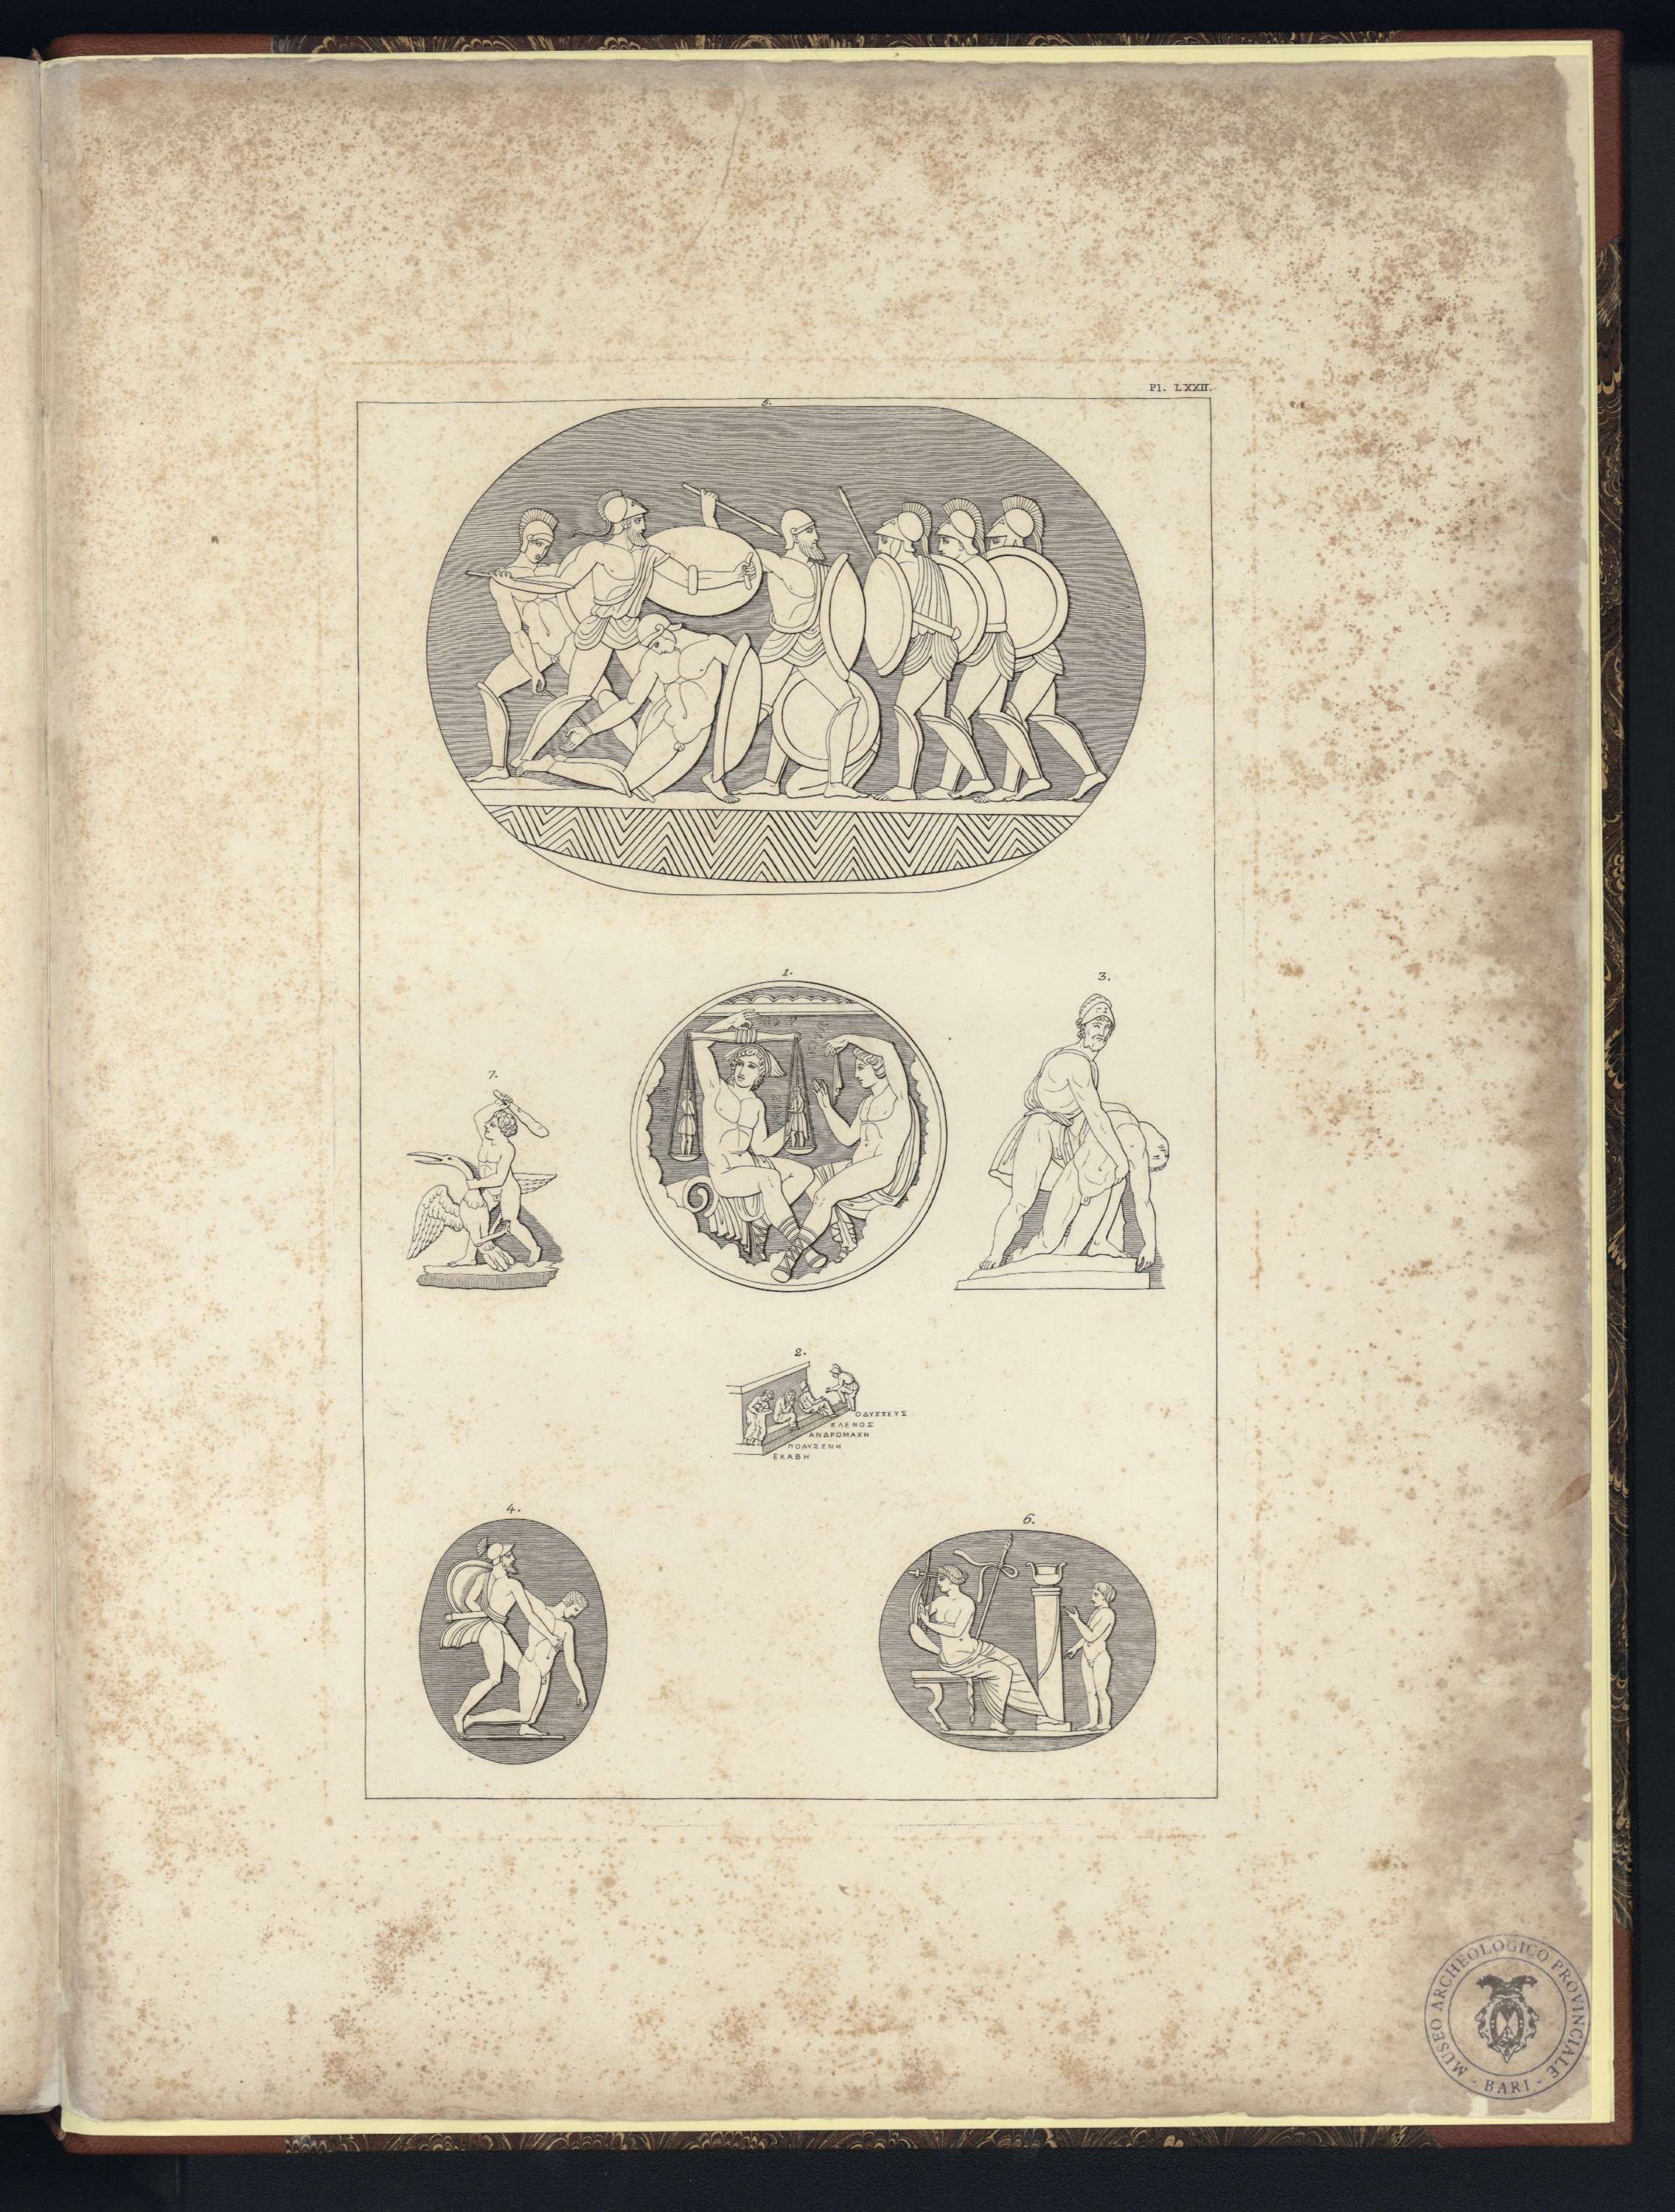 Pl. LXXII.
5.
1.
3.
7.
2.
ΟΔΥΣΣΕΥΣ
ΕΛΕΝΟΣ
ΑΝΔΡΟΜΑΧΗ
ΠΟΛΥΞΕΝΗ
ΕΚΑΒΗ
4.
6.
MUSEO ARCHEOLOGICO PROVINCIALE
- BARI -